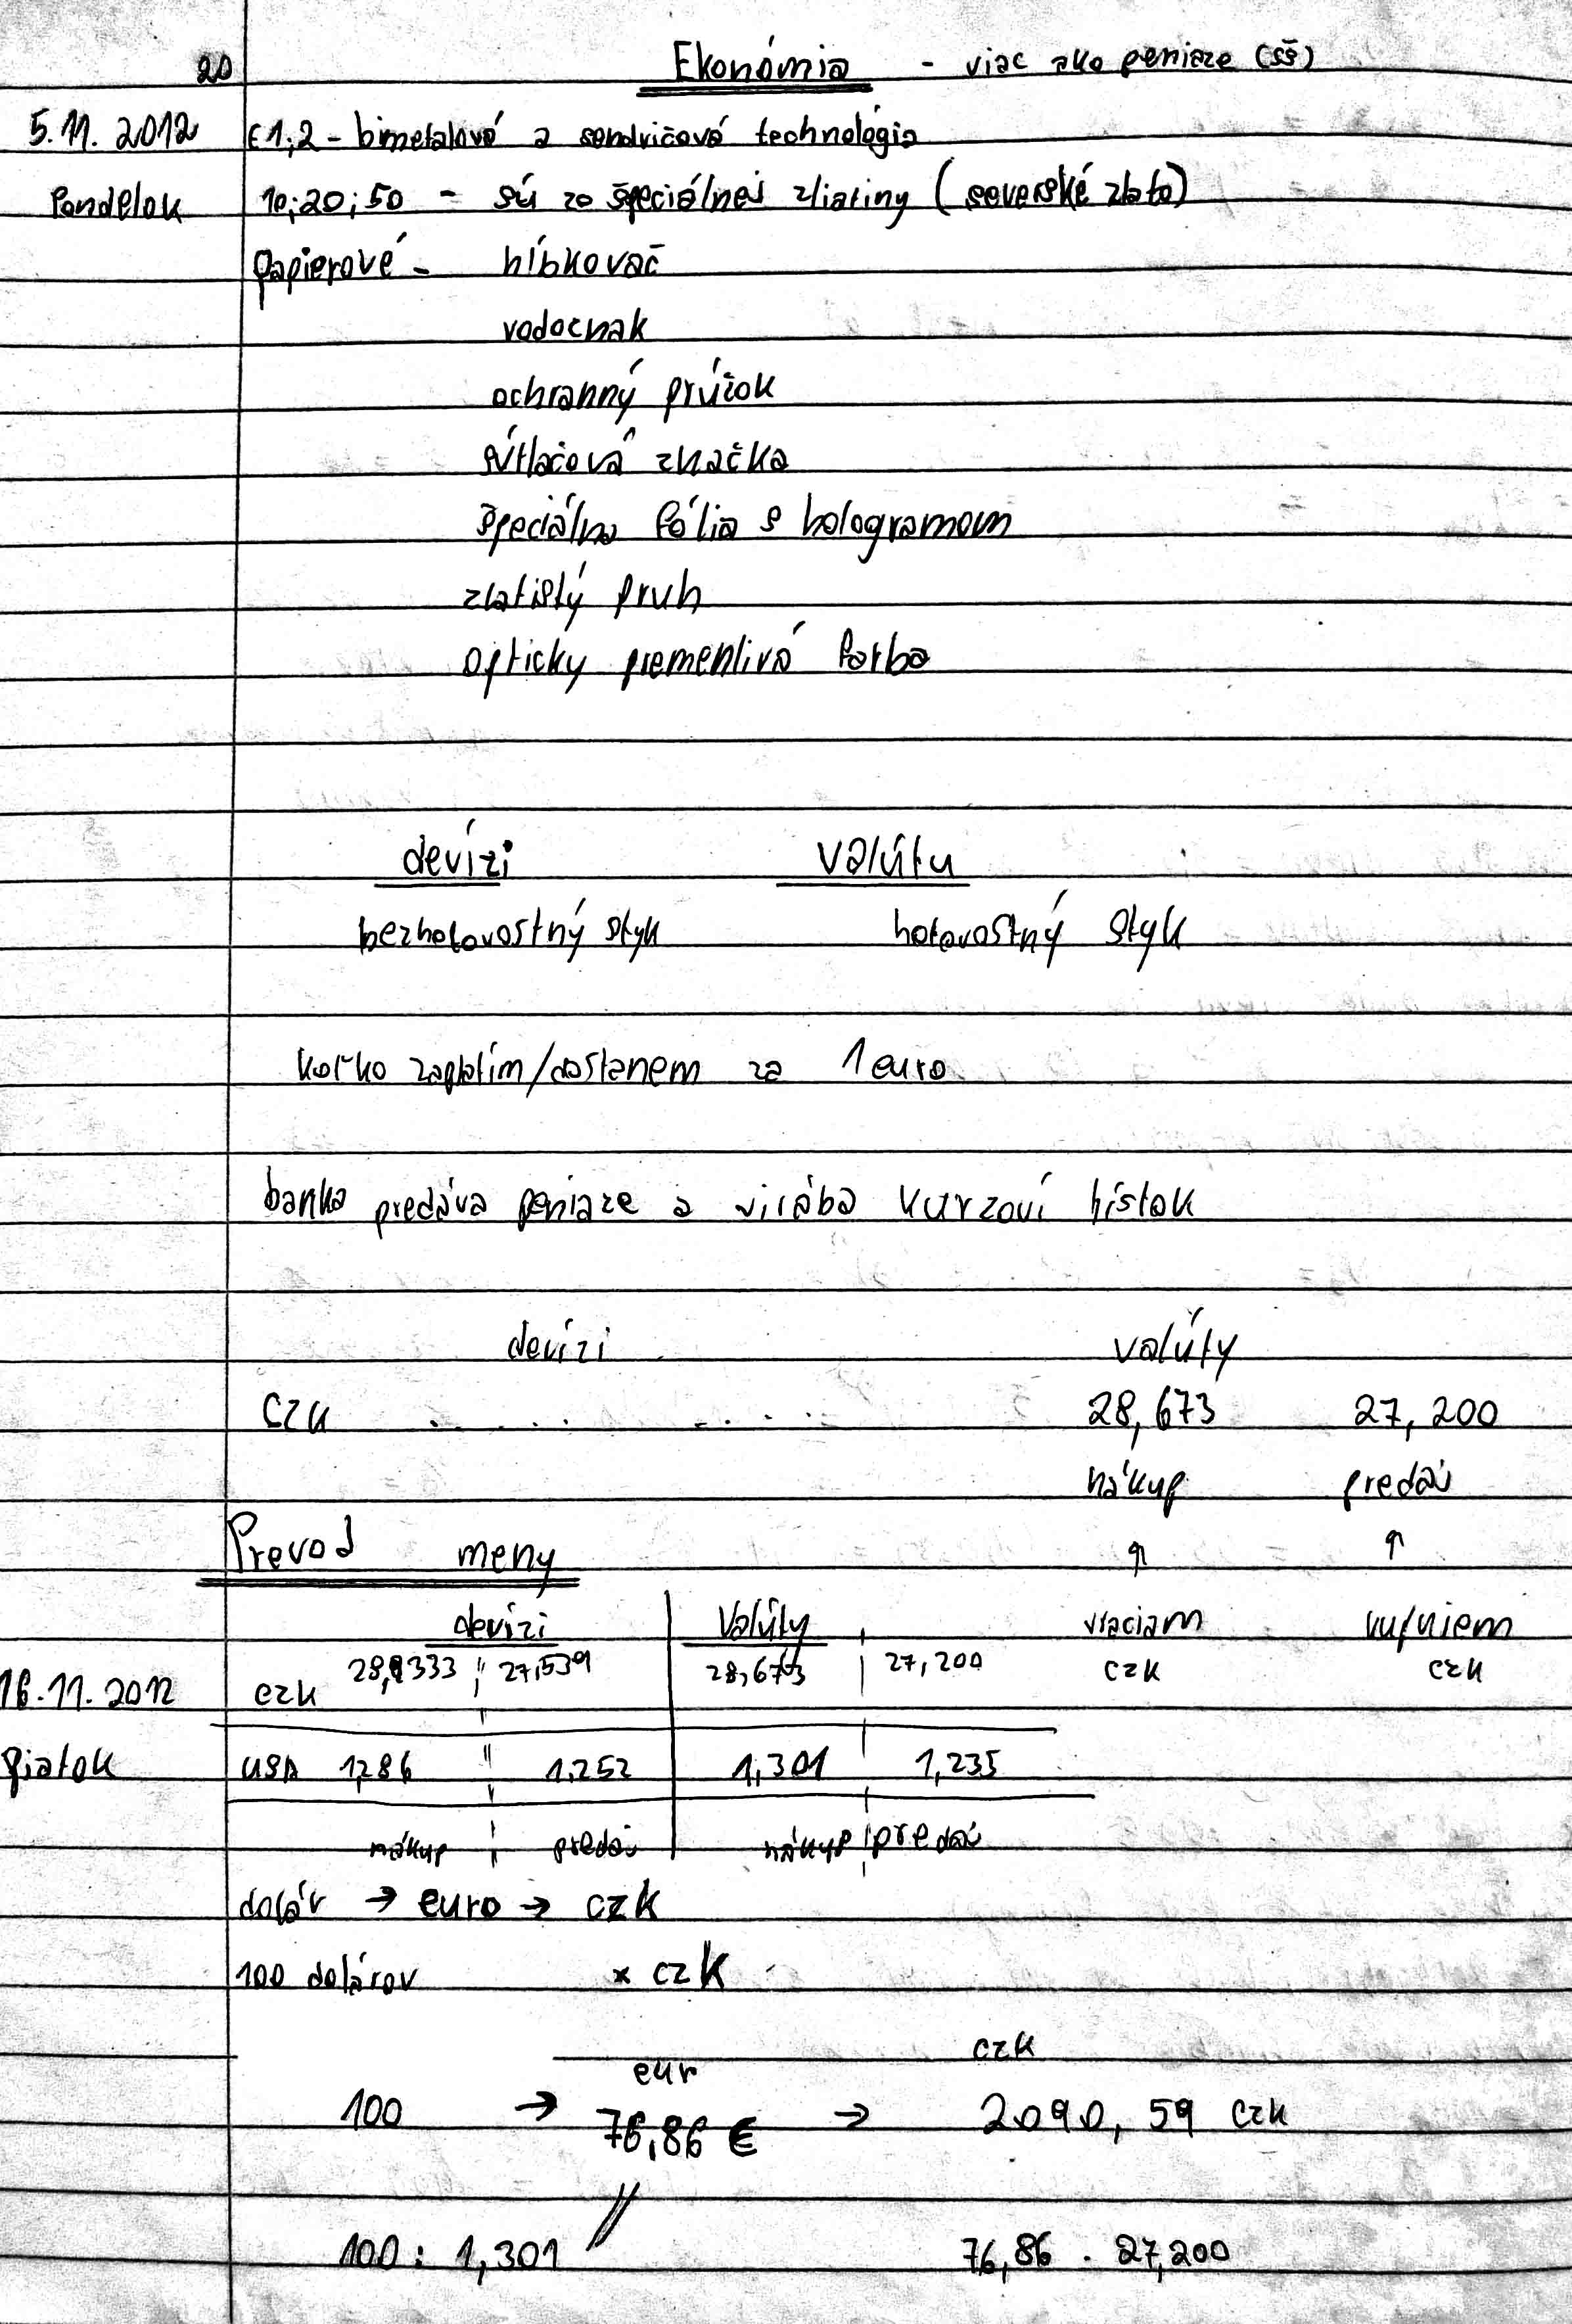 20 Ekonómia - viac ako peniaze (SŠ)
5.11.2012 €1;2 - bimetalová a sendvičová technológia
Pondelok 10;20;50 - sú zo špeciálnej zliatiny (severské zlato)
papierové - hĺbkovač
vodoznak
ochranný prúžok
sútlačová značka
špeciálna fólia s hologramom
zlatistý pruh
opticky premenlivá farba
devízi valúty
bezhotovostný styk hotovostný styk
koľko zaplatím/dostanem za 1 euro
banka predáva peniaze a virába kurzoví lístok
devízi valúty
CZK 28,673 27,200
nákup predaj
Prevod meny ↑ ↑
devízi Valúty vraciam kupujem
28,333 27,539 28,673 27,200 CZK CZK
16.11.2012 CZK
piatok USA 1,286 1,252 1,301 1,235
nákup predaj nákup predaj
dolár → euro → czk
100 dolárov x czk
eur czk
100 → 76,86 € → 2090,59 czk
100 : 1,301 76,86 . 27,200